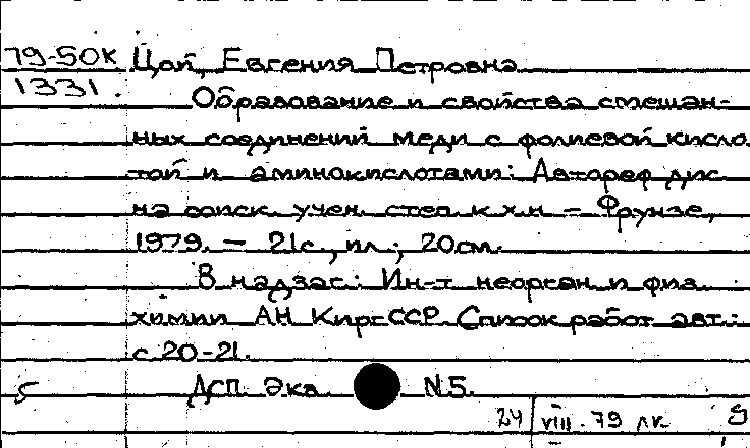 79-50К Цой, Евгения Петровна
1331.
Образование и свойства смешан-
ных соединений меди с фолиевой кисло
той и аминокислотами: Автореф дис
на соиск. учен. степ. к.х.н – Фрунзе,
1979. – 21с., ил.; 20см.
В надзаг: Ин-т неорган. и физ.
химии АН Кирг.ССР. Список работ авт.:
с 20-21.
5 ДСП. Экз. N5.
24 VIII. 79 лк